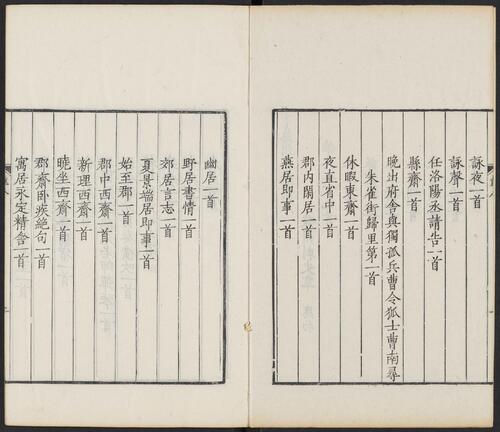 詠夜一首
詠聲一首
任洛陽丞請告一首
縣齋一首
晚出府舍與獨孤兵曹令狐士曹南尋
朱雀街歸里第一首
休暇東齋一首
夜直省中一首
郡內閑居一首
燕居即事一首
幽居一首
野居書情一首
郊居言志一首
夏景端居即事一首
始至郡一首
郡中西齋一首
新理西齋一首
曉坐西齋一首
郡齋臥疾絕句一首
寓居永定精舍一首